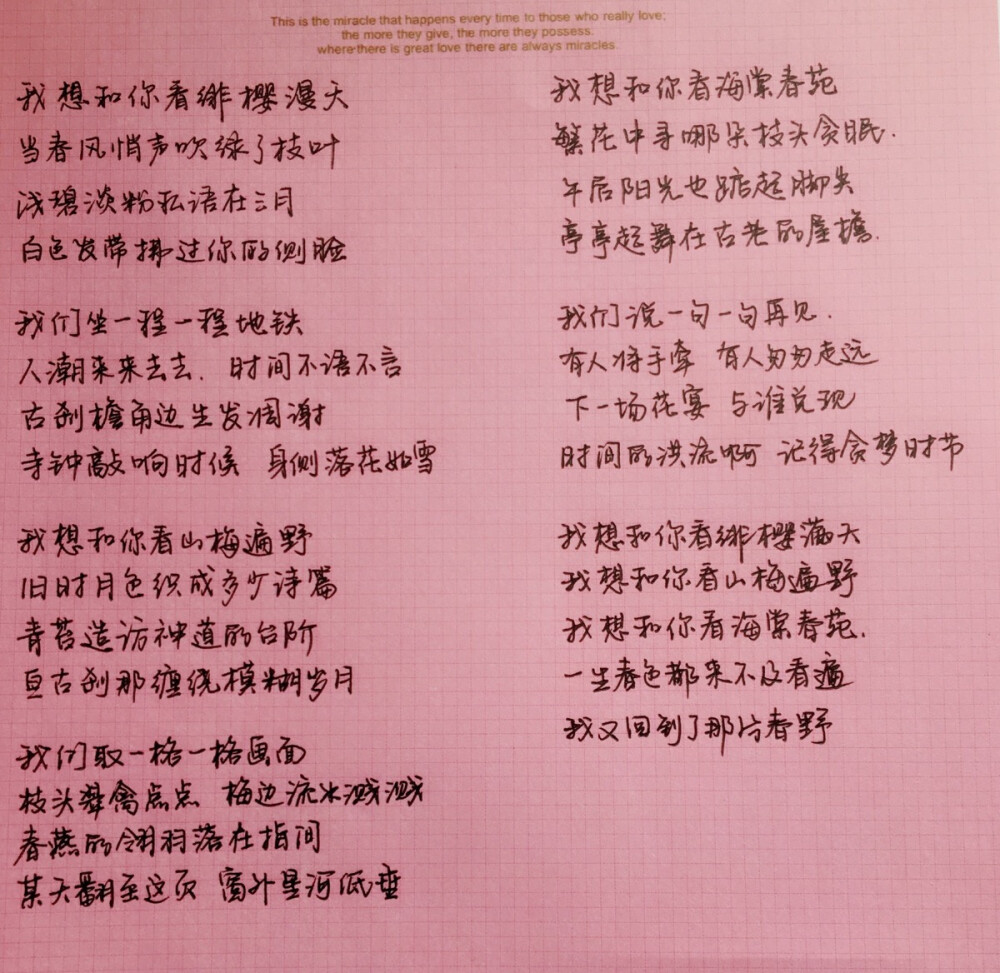 This is the miracle that happens every time to those who really love;
the more they give, the more they possess.
where there is great love there are always miracles.
我想和你看绯樱漫天
当春风悄声吹绿了枝叶
浅碧淡粉私语在三月
白色发带拂过你的侧脸
我们坐一程一程地铁
人潮来来去去. 时间不语不言
古刹檐角边生发凋谢
寺钟敲响时候 身侧落花如雪
我想和你看山梅遍野
旧时月色织成多少诗篇
青苔造访神道的台阶
亘古刹那缠绕模糊岁月
我们取一格一格画面
枝头舜禽点点 梅边流水溅溅
春燕的翎羽落在指间
某天翻至这页 窗外星河低垂
我想和你看海棠春苑
繁花中寻哪朵枝头贪眠.
午后阳光也踮起脚尖
亭亭起舞在古老的屋檐.
我们说一句一句再见.
有人将手牵 有人匆匆走远
下一场花宴 与谁兑现
时间的洪流啊 记得贪梦时节
我想和你看绯樱满天
我想和你看山梅遍野
我想和你看海棠春苑.
一生春色都来不及看遍
我又回到了那片春野